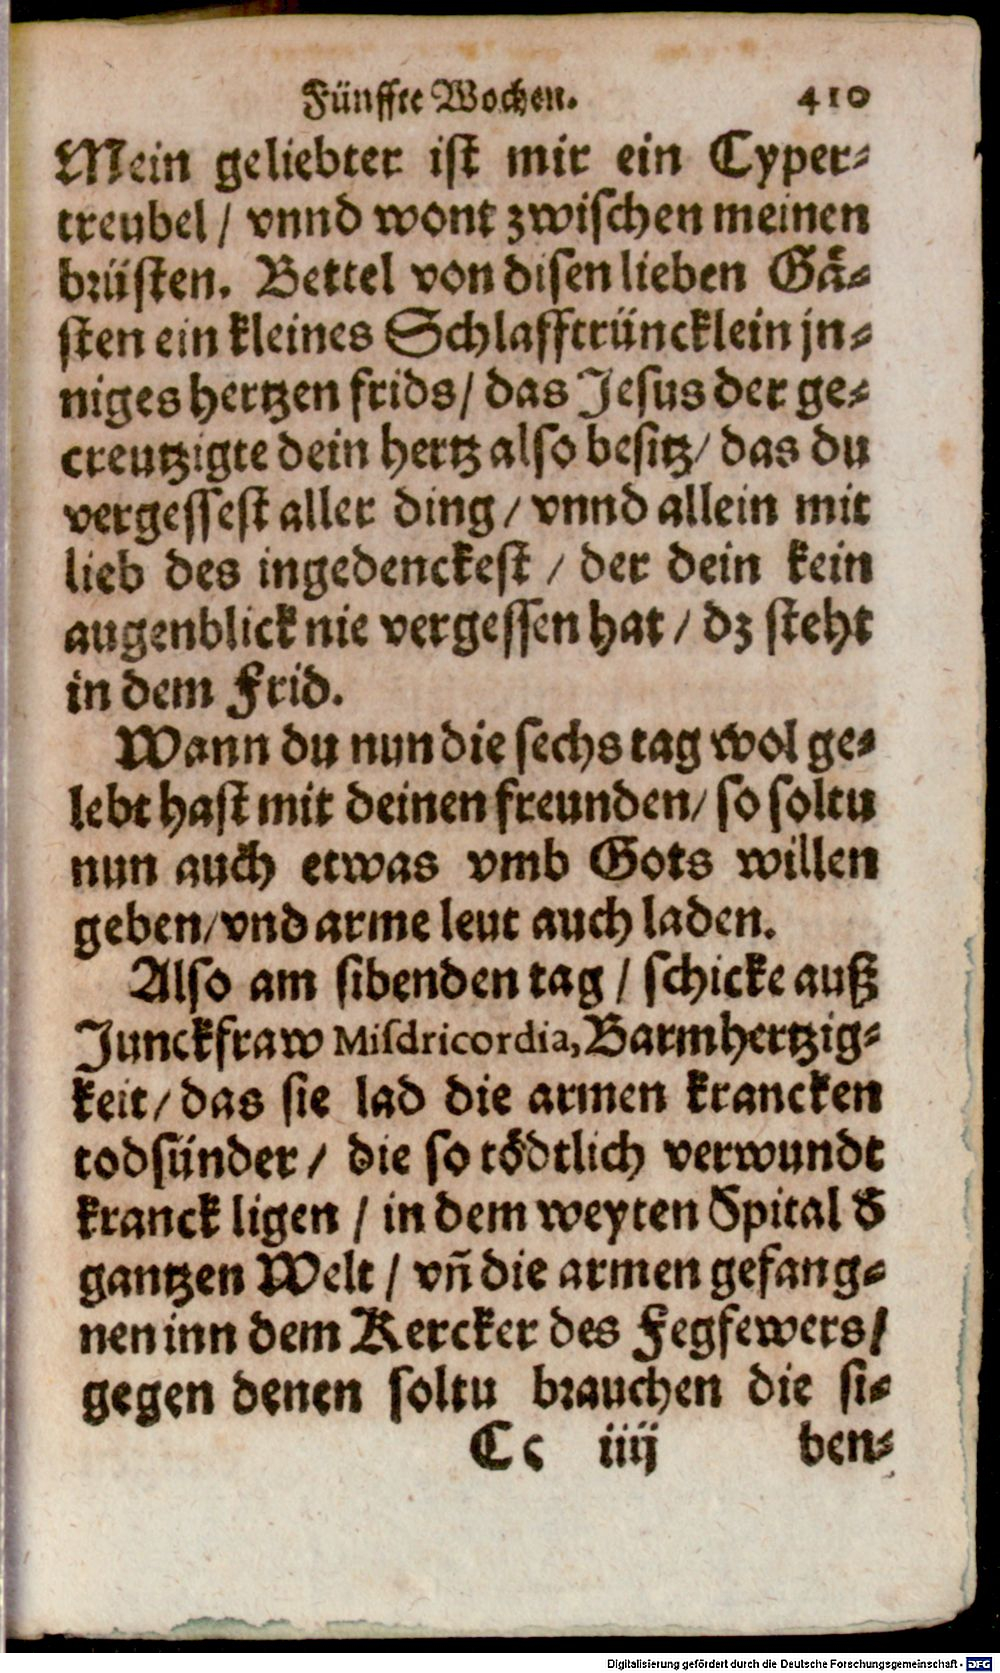 Fünffte Wochen. 410
Mein geliebter ist mir ein Cyper-
treubel / vnnd wont zwischen meinen
brüsten. Bettel von disen lieben Gä-
sten ein kleines Schlafftrüncklein jn-
niges hertzen frids / das Jesus der ge-
creutzigte dein hertz also besitz / das du
vergessest aller ding / vnnd allein mit
lieb des ingedenckest / der dein kein
augenblick nie vergessen hat / dz steht
in dem Frid.
Wann du nun die sechs tag wol ge-
lebt hast mit deinen freunden / so soltu
nun auch etwas vmb Gots willen
geben / vnd arme leut auch laden.
Also am sibenden tag / schicke auß
Junckfraw Misdricordia, Barmhertzig-
keit / das sie lad die armen krancken
todsünder / die so tödtlich verwundt
kranck ligen / in dem weyten Spital d̕
gantzen Welt / vñ die armen gefang-
nen inn dem Kercker des Fegfewers /
gegen denen soltu brauchen die si-
Cc iiij ben-
Digitalisierung gefördert durch die Deutsche Forschungsgemeinschaft - DFG